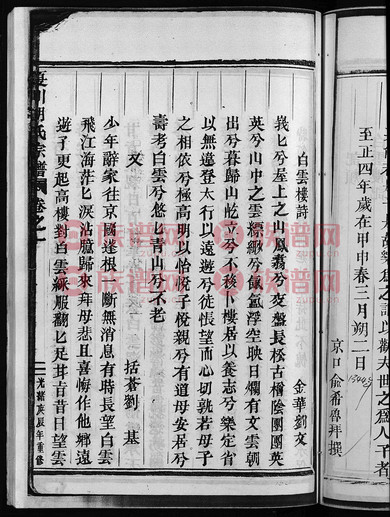 大而
樂爲之記以勸天世之爲人子者
至正四年歲在甲申春三月朔二日
京口俞希魯拜撰
13005
白雲樓詩
金華劉文
莪匕兮屋上之山鳳翥
盤長松古檜陰團團英
英兮山中之雲縹緲兮氤氲浮空映日爛有文雲朝
出兮暮歸山屹立兮不移卜樓居以養志兮樂定省
以無違登太行以遠遊兮徒悵望而心切孰若母子
之相依兮極高明以怡悅子悅親兮有道母安居兮
壽考白雲兮悠匕青山兮不老
又
括蒼劉基
少年辭家往京國蓬根一斷無消息有時長望白雲
飛江海茫匕淚沾臆歸來拜母悲且喜悔作他鄉遠
遊子更起高樓對白雲綵服翩匕足甘旨昔日望雲
宗譜
卷之一
光緒庚辰年重修
族譜网